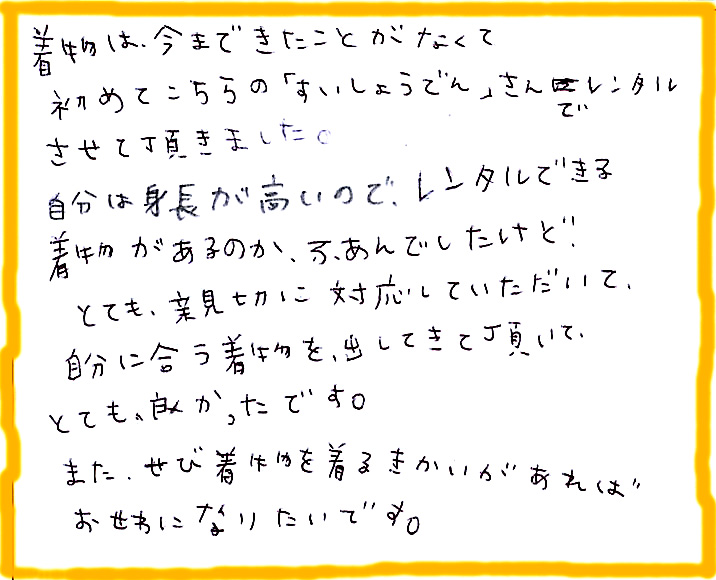 着物は、今まできたことがなくて
初めてこちらの「すいしょうでん」さんで レンタル
させて頂きました。
自分は身長が高いので、レンタルできる
着物があるのか、ふあんでしたけど、
とても、親切に対応していただいて、
自分に合う着物を、出してきて頂いて、
とても、良かったです。
また、ぜひ着物を着るきかいがあれば
おせわになりたいです。